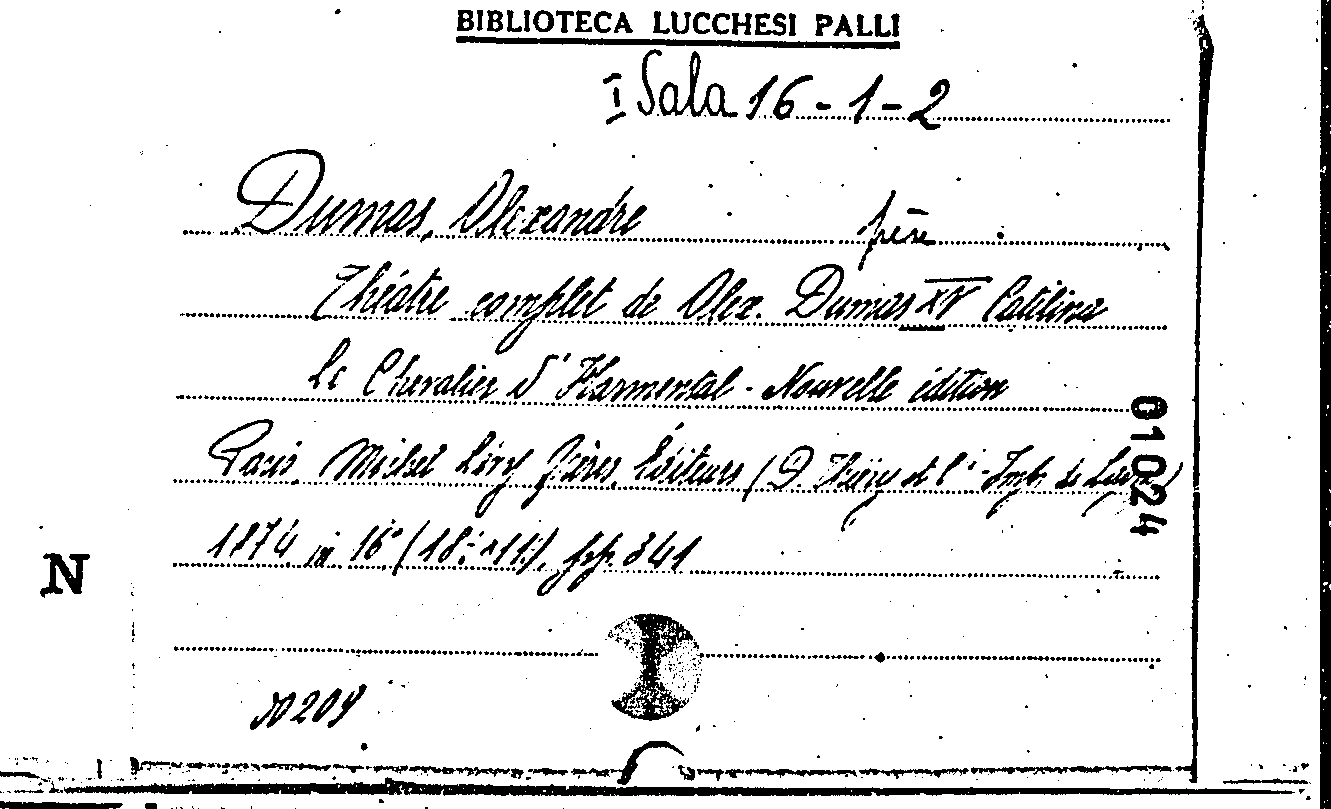 BIBLIOTECA LUCCHESI PALLI
I Sala 16-1-2
Dumas, Alexandre père
Théâtre complet de Alex. Dumas XV Catilina
Le Chevalier d'Harmental - Nouvelle édition
Paris. Michel Lévy Frères, Éditeurs (D. Thiéry et C.ie - Imp. de
01024
1874 in 16° (18: x 11:). pp. 341
N